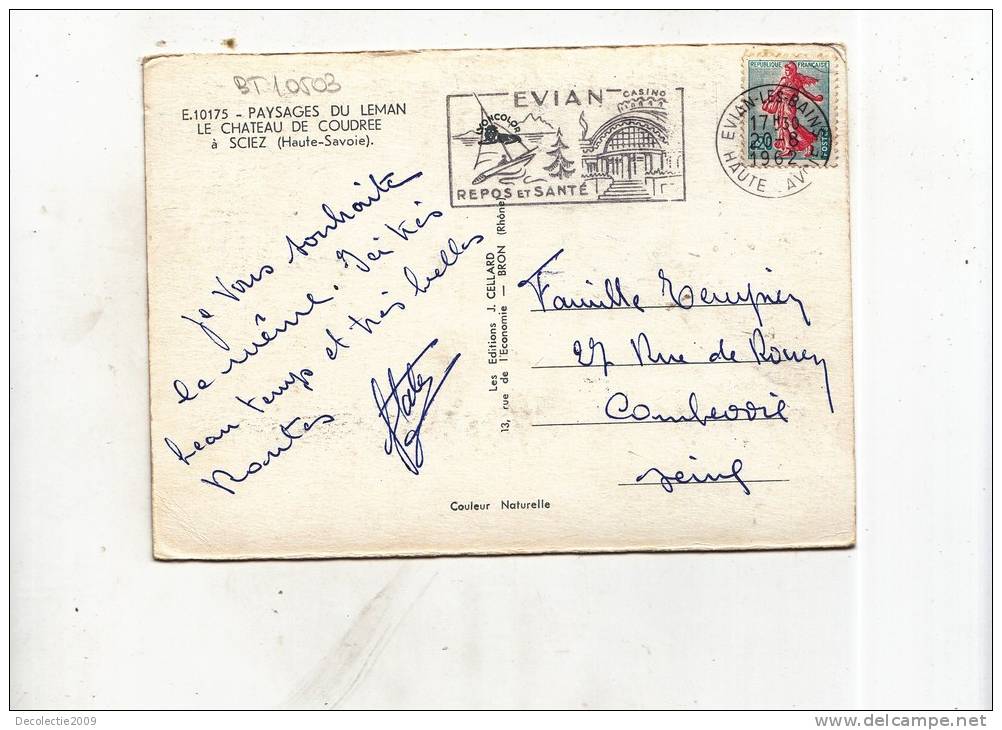 BT 10503
E.10175 - PAYSAGES DU LEMAN
LE CHATEAU DE COUDREE
à SCIEZ (Haute-Savoie).
EVIAN
CASINO
REPOS ET SANTÉ
REPUBLIQUE FRANÇAISE
POSTES
EVIAN-LES-BAINS
17H30
20-8
1962
HAUTE
je vous souhaite
le même. Ici très
beau temps et très belles
Routes
Les Editions J. CELLARD
13, rue de l'Economie — BRON (Rhône)
Famille
27 Rue de Rouen
Seine
Couleur Naturelle
Decolectie2009
www.delcampe.net